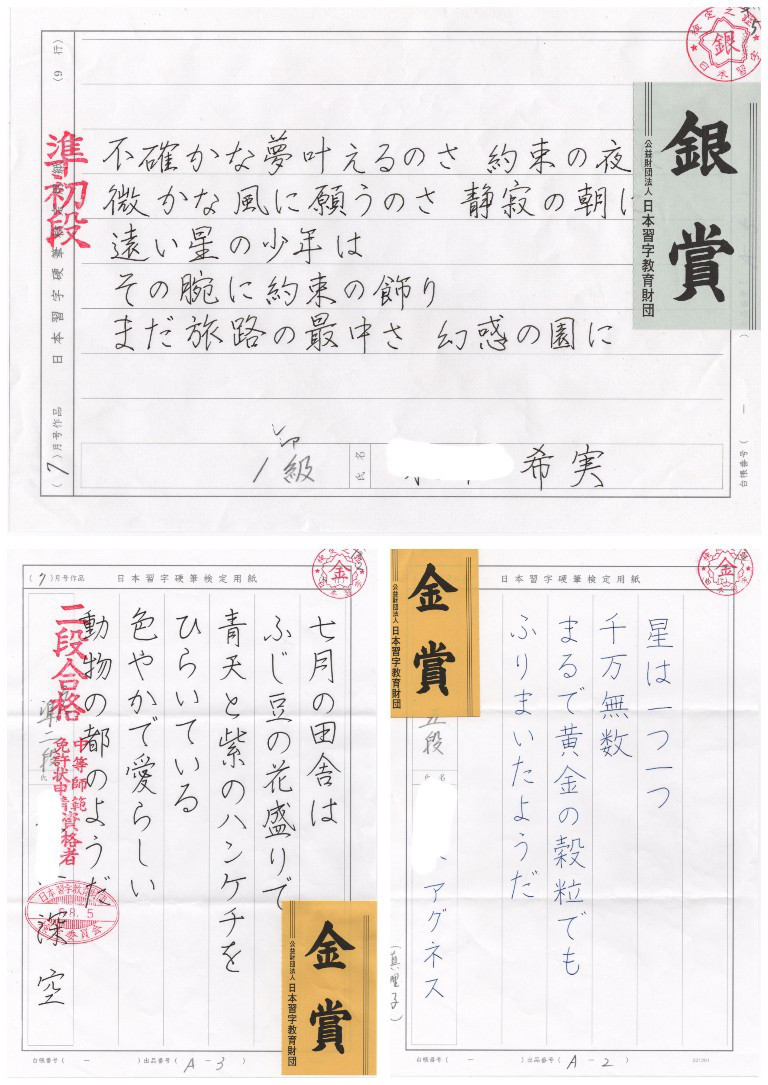 (9 行)
準初段
日本習字硬筆
(7)月号作品
不確かな夢叶えるのさ 約束の夜
微かな風に願うのさ 静寂の朝に
遠い星の少年は
その腕に約束の飾り
まだ旅路の最中さ 幻惑の園に
級
氏名
希実
台帳番号( ー )
検定之証
銀
日本習字
銀賞
公益財団法人 日本習字教育財団
(7)月号作品
日本習字硬筆検定用紙
金
七月の田舎は
ふじ豆の花盛りで
青天と紫のハンケチを
ひらいている
色やかで愛らしい
動物の都のようだ
二段合格
中等師範
免許状申請資格者
準二段
氏
深空
日本習字教育財団
8.5
委員会
台帳番号( ー )
出品番号( A-3 )
金賞
公益財団法人 日本習字教育財団
日本習字硬筆検定用紙
金
星は一つ一つ
千万無数
まるで黄金の穀粒でも
ふりまいたようだ
金賞
公益財団法人 日本習字教育財団
五段
氏名
アグネス
台帳番号( ー )
出品番号( A-2 )